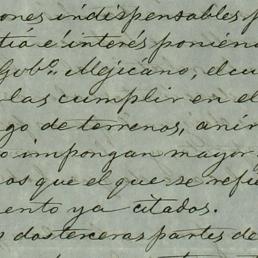 ones indispensables p
tiá é interés ponién
Gob.º Mejicano, el cu
las cumplir en el
go de terrenos, anin
o impongan mayor
os que el que se refi
ento ya citados.
s dos terceras partes de